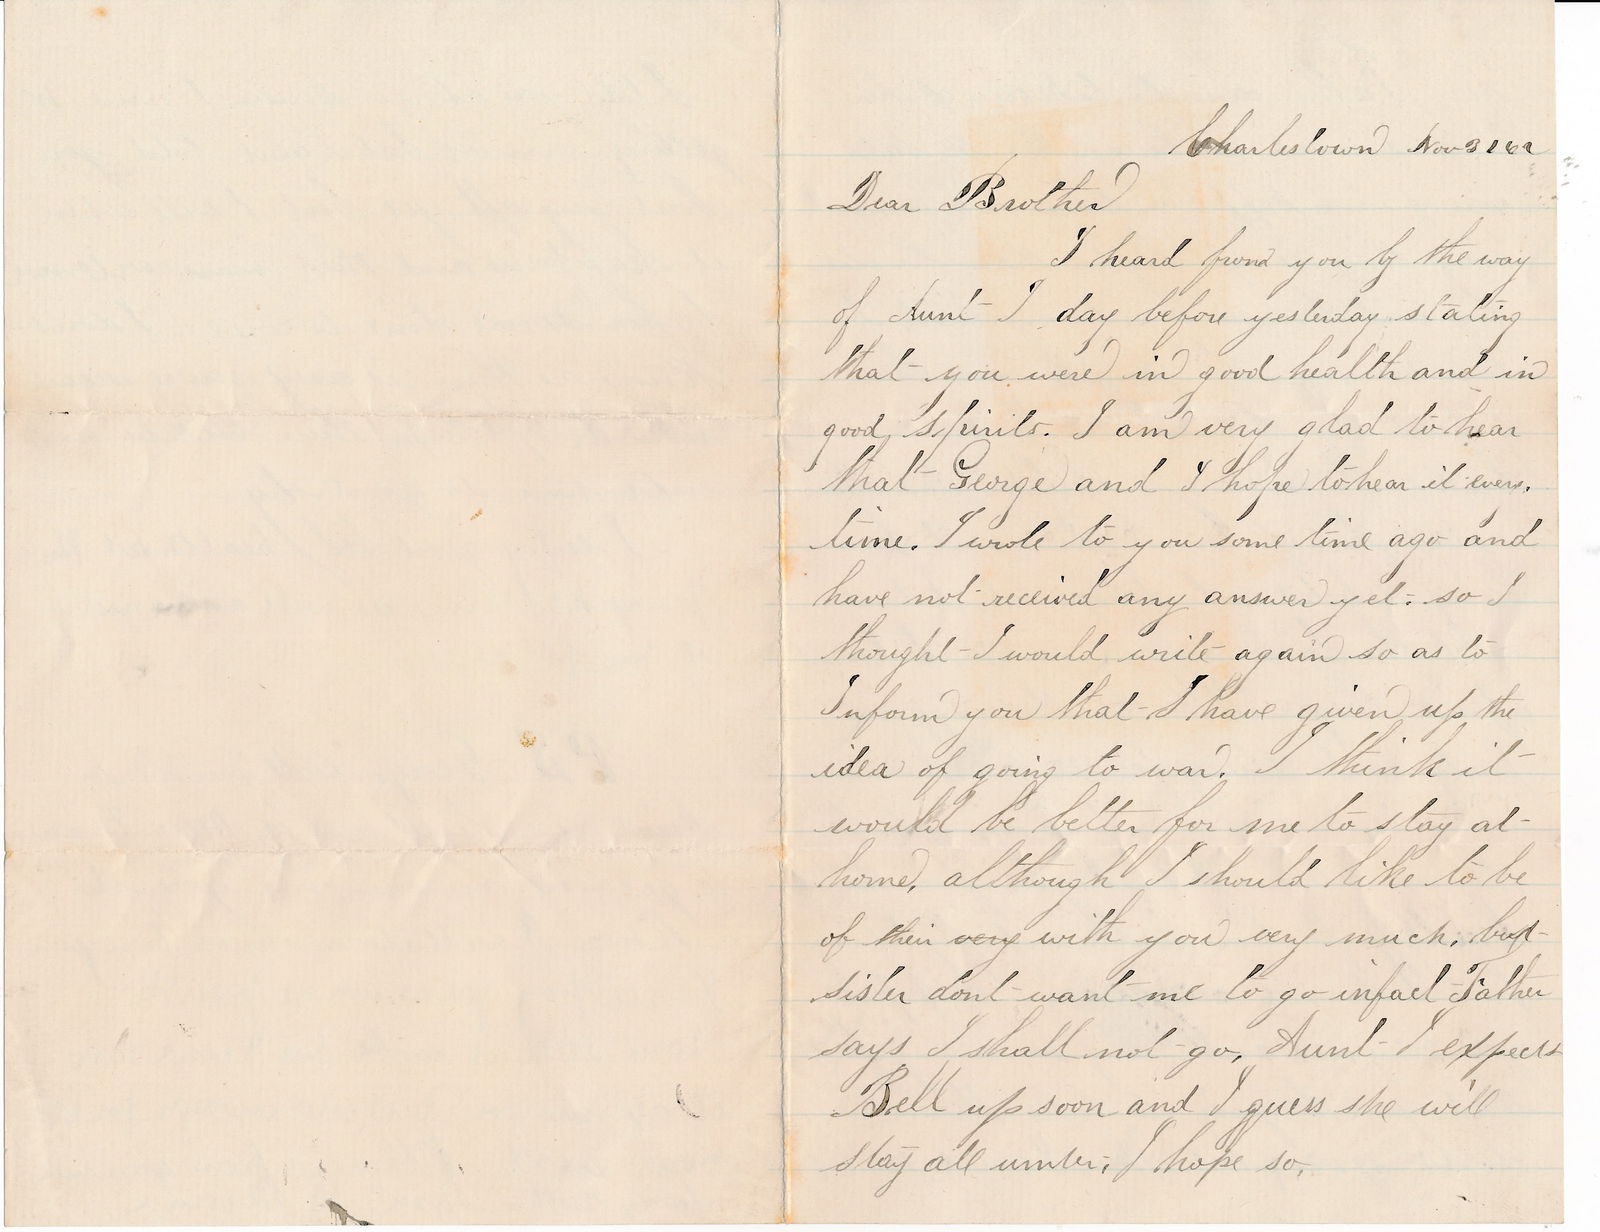 Charlestown Nov 3 1862
Dear Brother
I heard from you by the way
of Aunt I day before yesterday stating
that you were in good health and in
good spirits. I am very glad to hear
that George and I hope to hear it every
time. I wrote to you some time ago and
have not received any answer yet. so I
thought I would write again so as to
Inform you that I have given up the
idea of going to war. I think it
would be better for me to stay at
home, although I should like to be
of their very with you very much, but
sister dont want me to go infact Father
says I shall not go, Aunt I expects
Bell up soon and I guess she will
stay all I hope so,